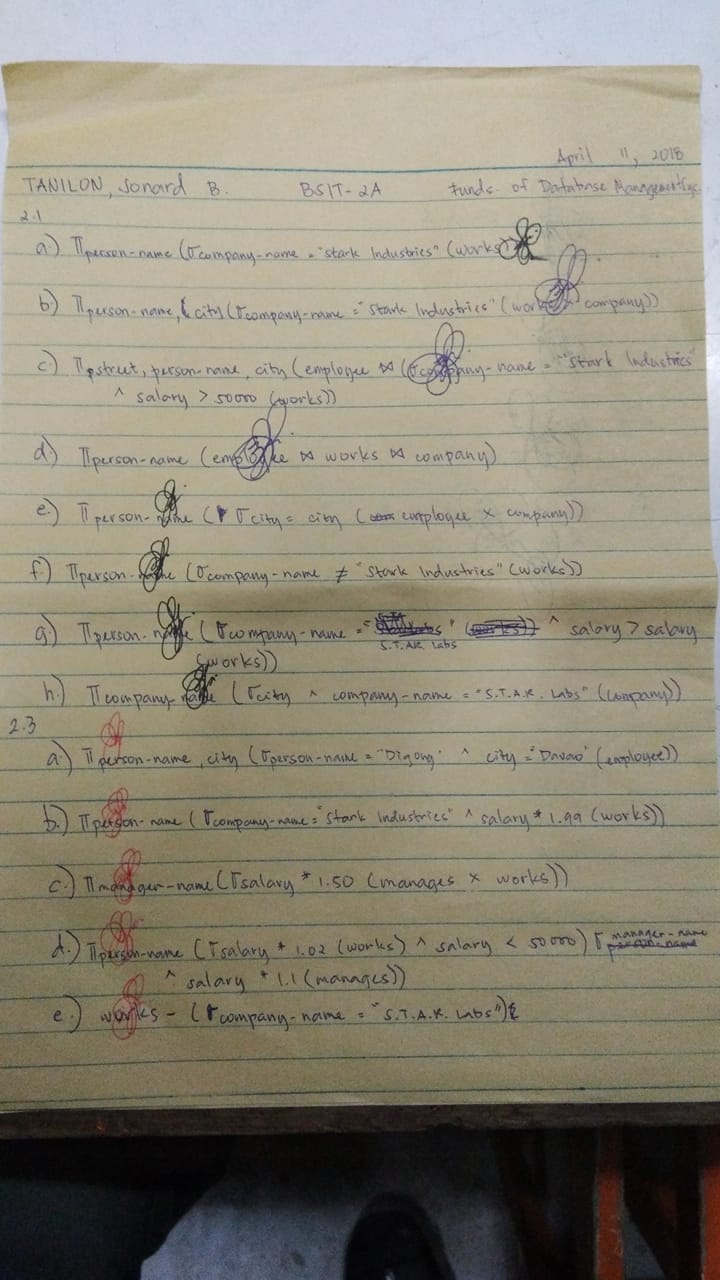 April 11, 2018
TANILON, Jonard B. BSIT-2A Funds. of Database Management Sys.
2.1
a.) Πperson-name (σcompany-name = "Stark Industries" (works))
b) Πperson-name, city (σcompany-name = "Stark Industries" (works x company))
c.) Πstreet, person-name, city (employee ⋈ (σcompany-name = "Stark Industries"
^ salary > 50000 (works))
d.) Πperson-name (employee ⋈ works ⋈ company)
e.) Πperson-name (σcity = city (employee x company))
f.) Πperson-name (σcompany-name ≠ "Stark Industries" (works))
g.) Πperson-name (σcompany-name = " " ^ salary > salary
S.T.A.R. Labs
(works))
h.) Πcompany-name (σcity ^ company-name = "S.T.A.R. Labs" (company))
2.3
a.) Πperson-name, city (σperson-name = "Digong" ^ city = "Davao" (employee))
b.) Πperson-name (σcompany-name = "Stark Industries" ^ salary * 1.99 (works))
c.) Πmanager-name (σsalary * 1.50 (manages x works))
d.) Πperson-name (σsalary * 1.02 (works) ^ salary < 50000) σ manager-name
^ salary * 1.1 (manages))
e.) works - (σcompany-name = "S.T.A.R. Labs")